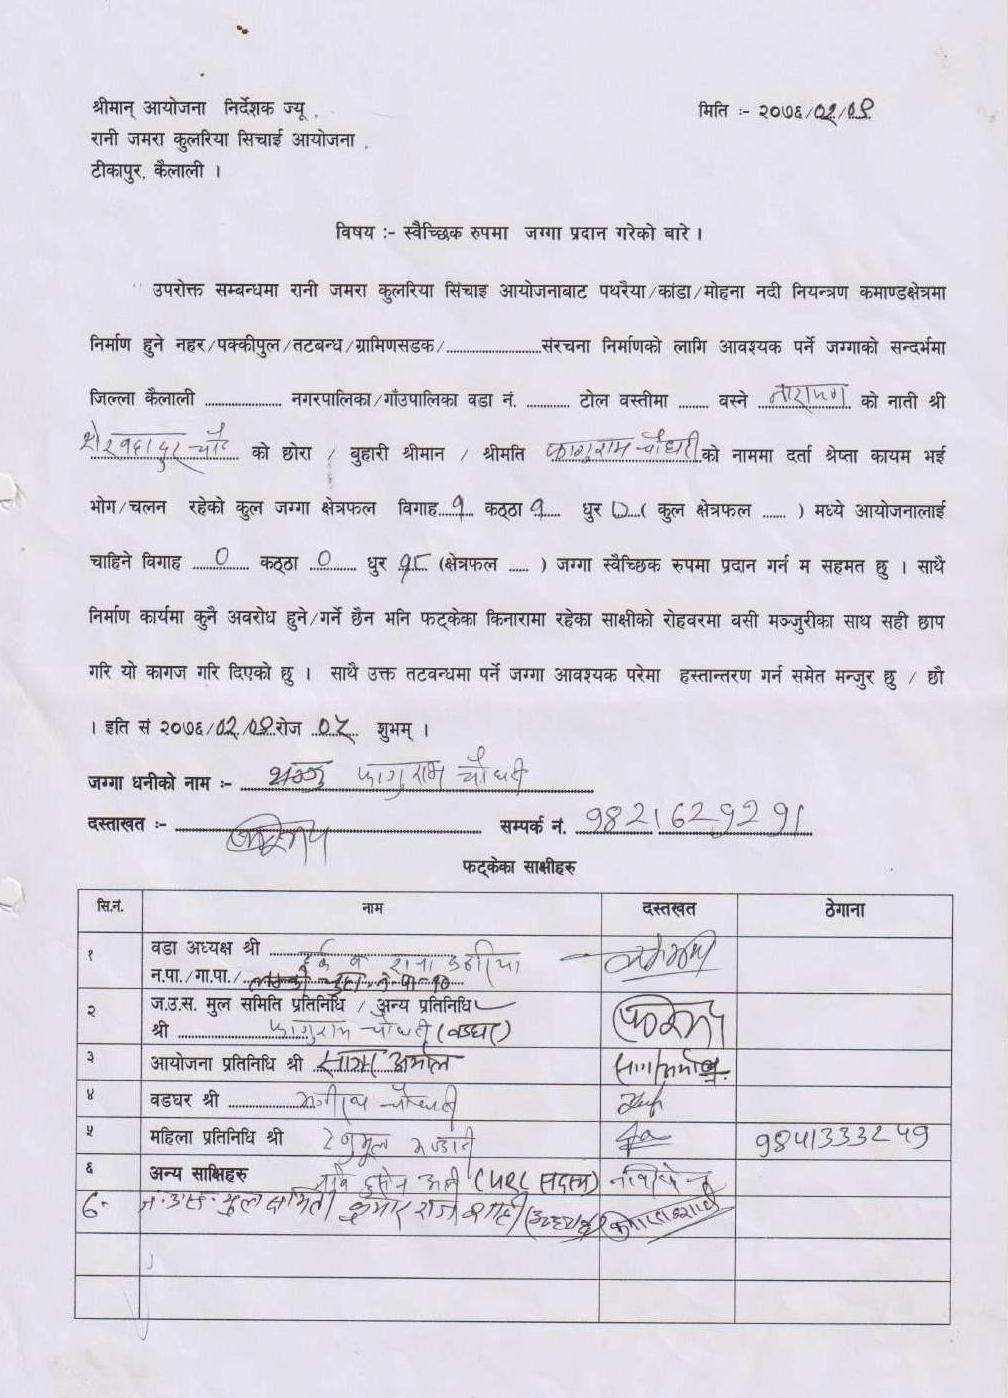 श्रीमान् आयोजना निर्देशक ज्यू ,
मिति :- २०७६/०२/०९
रानी जमरा कुलरिया सिचाई आयोजना ,
टीकापुर, कैलाली ।
विषय :- स्वैच्छिक रुपमा जग्गा प्रदान गरेको बारे ।
उपरोक्त सम्बन्धमा रानी जमरा कुलरिया सिंचाइ आयोजनाबाट पथरैया/कांडा/मोहना नदी नियन्त्रण कमाण्डक्षेत्रमा
निर्माण हुने नहर/पक्कीपुल/तटबन्ध/ग्रामिणसडक/........................संरचना निर्माणको लागि आवश्यक पर्ने जग्गाको सन्दर्भमा
जिल्ला कैलाली .................... नगरपालिका/गाँउपालिका वडा नं. ........... टोल वस्तीमा ........ वस्ने नारायण को नाती श्री
शेरबहादुर चौ को छोरा / बुहारी श्रीमान / श्रीमति फागुराम चौधरी को नाममा दर्ता श्रेष्ता कायम भई
भोग/चलन रहेको कुल जग्गा क्षेत्रफल विगाह १ कठ्ठा १ धुर ( कुल क्षेत्रफल ...... ) मध्ये आयोजनालाई
चाहिने विगाह 0 कठ्ठा 0 धुर १८ (क्षेत्रफल ..... ) जग्गा स्वैच्छिक रुपमा प्रदान गर्न म सहमत छु । साथै
निर्माण कार्यमा कुनै अवरोध हुने/गर्ने छैन भनि फट्केका किनारामा रहेका साक्षीको रोहवरमा वसी मञ्जुरीका साथ सही छाप
गरि यो कागज गरि दिएको छु । साथै उक्त तटवन्धमा पर्ने जग्गा आवश्यक परेमा हस्तान्तरण गर्न समेत मन्जुर छु / छौ
। इति सं २०७६/०२/०९ रोज ०५ शुभम् ।
जग्गा धनीको नाम :- फागुराम चौधरी
दस्ताखत :- सम्पर्क नं. 9821629291
फट्केका साक्षीहरु
सि.नं. नाम दस्तखत ठेगाना
१ वडा अध्यक्ष श्री
न.पा./गा.पा./
२ ज.उ.स. मुल समिति प्रतिनिधि / अन्य प्रतिनिधि
श्री फागुराम चौधरी (वडघर)
३ आयोजना प्रतिनिधि श्री
४ वडघर श्री चौधरी
५ महिला प्रतिनिधि श्री 9841333249
६ अन्य साक्षिहरु (सदस्य)
ज.उ.स. मुल समिति कुमार राज शाही (अध्यक्ष)